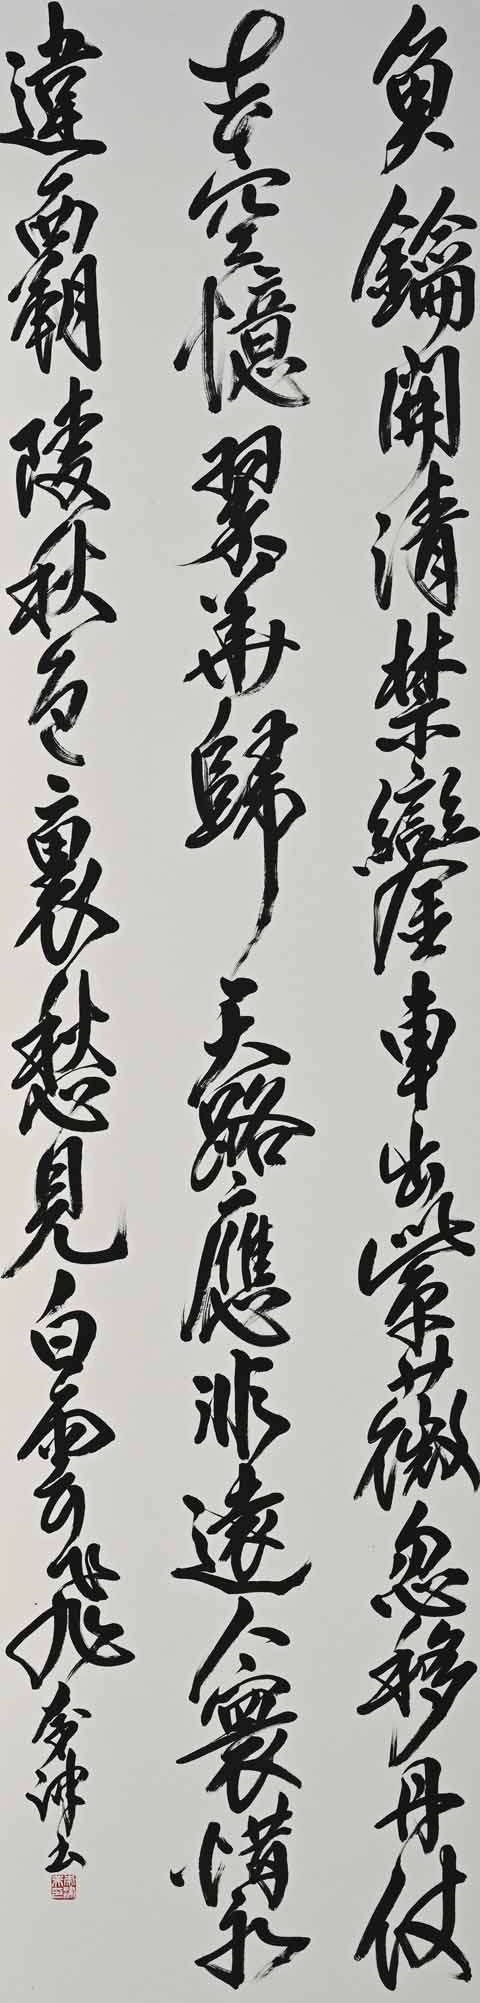 魚鑰開清禁鑾車出紫薇忽移丹仗
去空憶翠華歸天路應非遠人寰惜永
違覇陵秋色裏愁見白雲飛
書